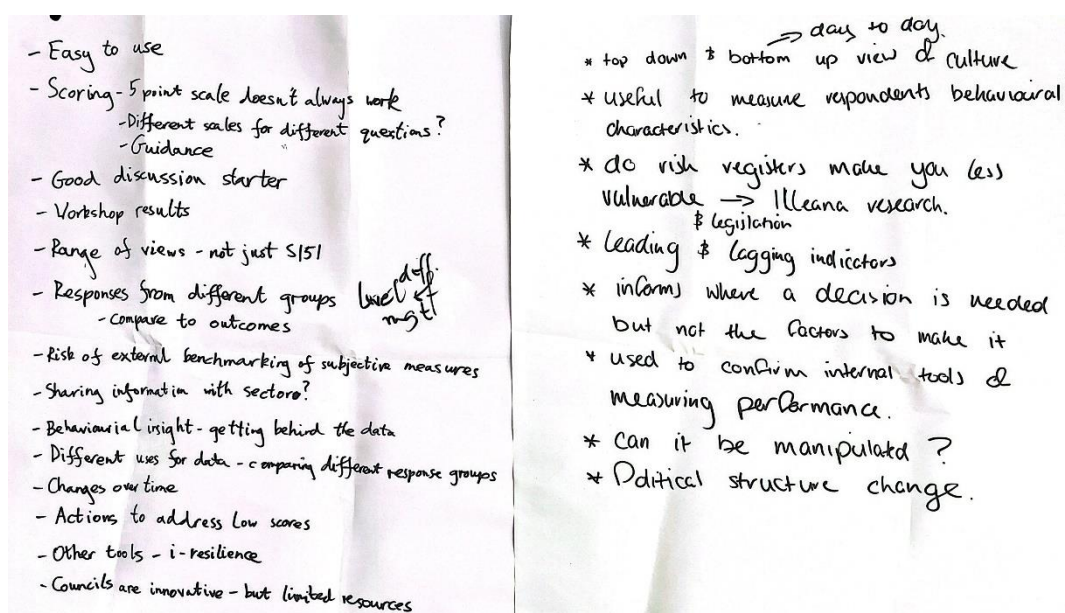 - Easy to use
- Scoring - 5 point scale doesn't always work
- Different scales for different questions?
- Guidance
- Good discussion starter
- Workshop results
- Range of views - not just S151
- Responses from different groups
diff.
level
mgt
- compare to outcomes
- Risk of external benchmarking of subjective measures
- Sharing information with sectors?
- Behaviourial insight - getting behind the data
- Different uses for data - comparing different response groups
- Changes over time
- Actions to address low scores
- Other tools - i-resilience
- Councils are innovative - but limited resources
⇒ day to day.
* top down & bottom up view of culture
* useful to measure repondents behavioural
characteristics.
* do risk registers make you less
vulnerable → Illeana research.
& legislation
* leading & lagging indicators
* informs where a decision is needed
but not the factors to make it
* used to confirm internal tools of
measuring performance.
* can it be manipulated ?
* Political structure change.